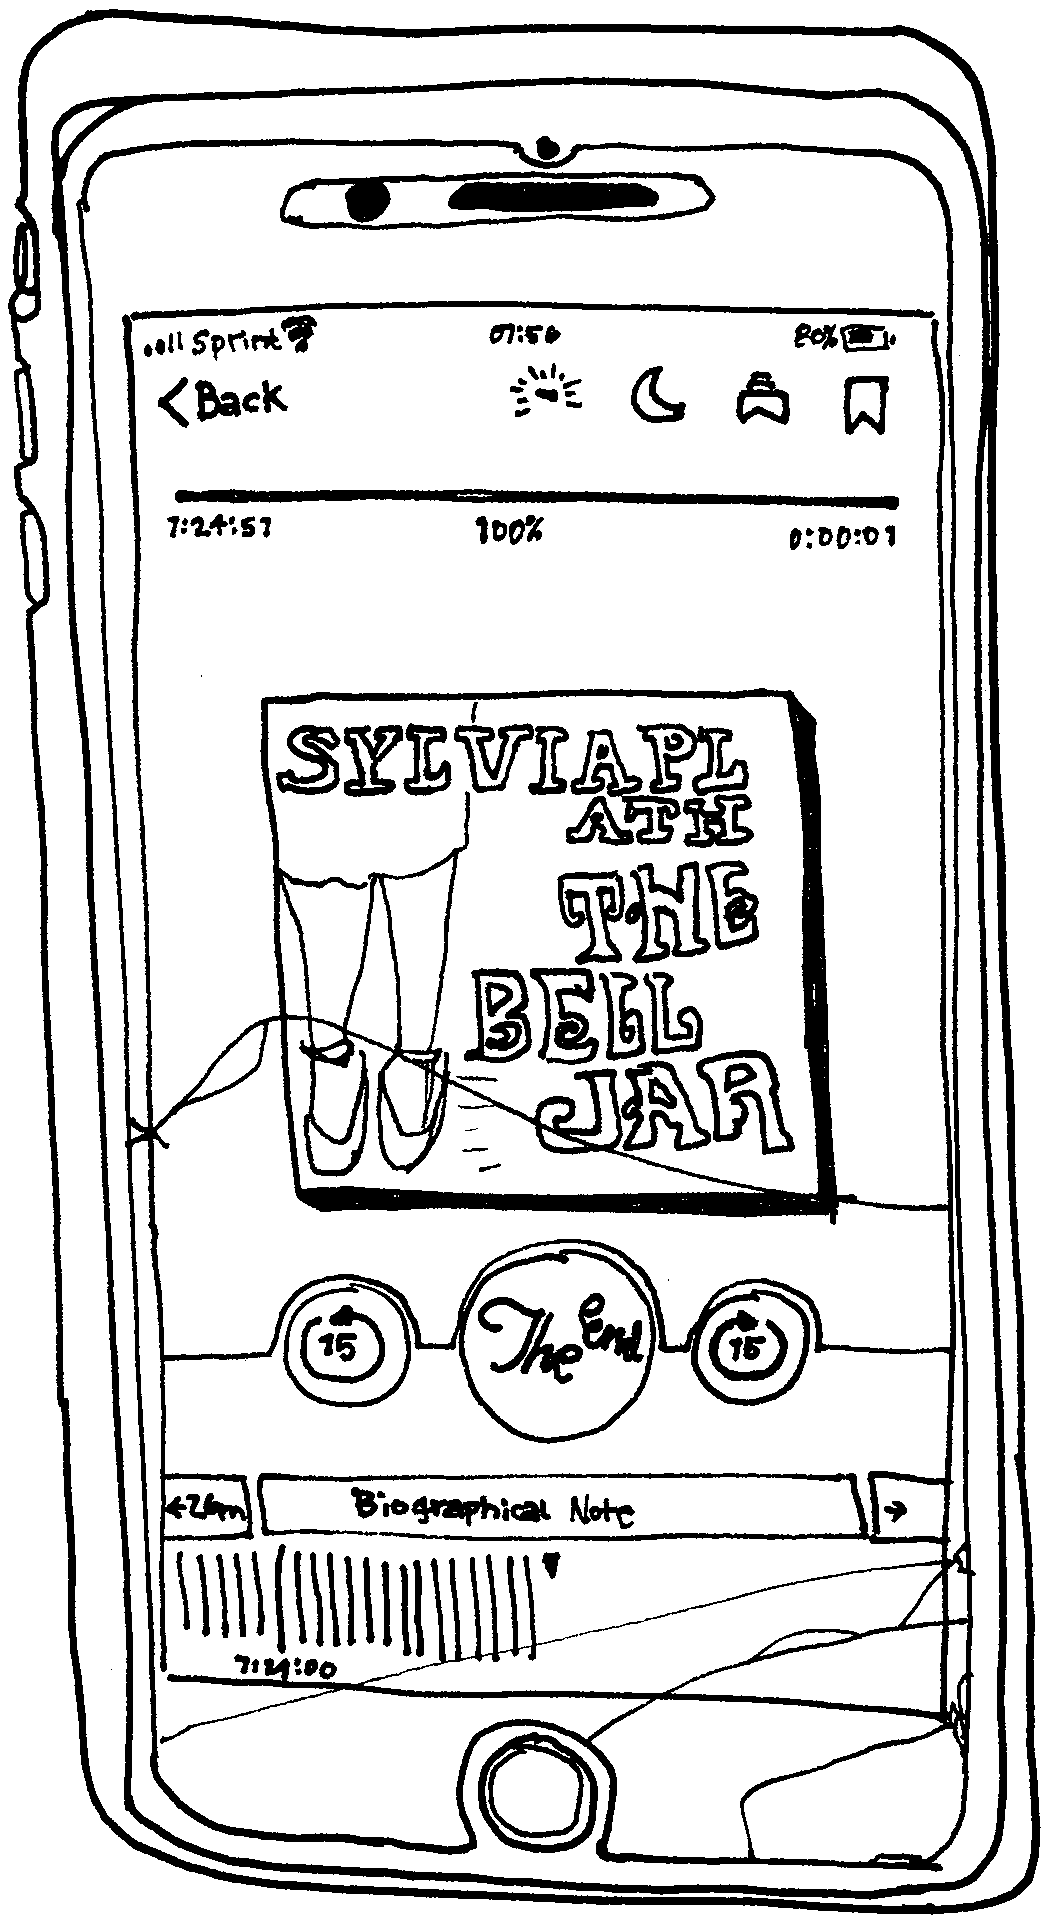 Sprint 07:56 80%
Back
7:24:57 100% 0:00:01
SYLVIAPL
ATH
THE
BELL
JAR
15 The end 15
←26m Biographical Note →
7:24:00